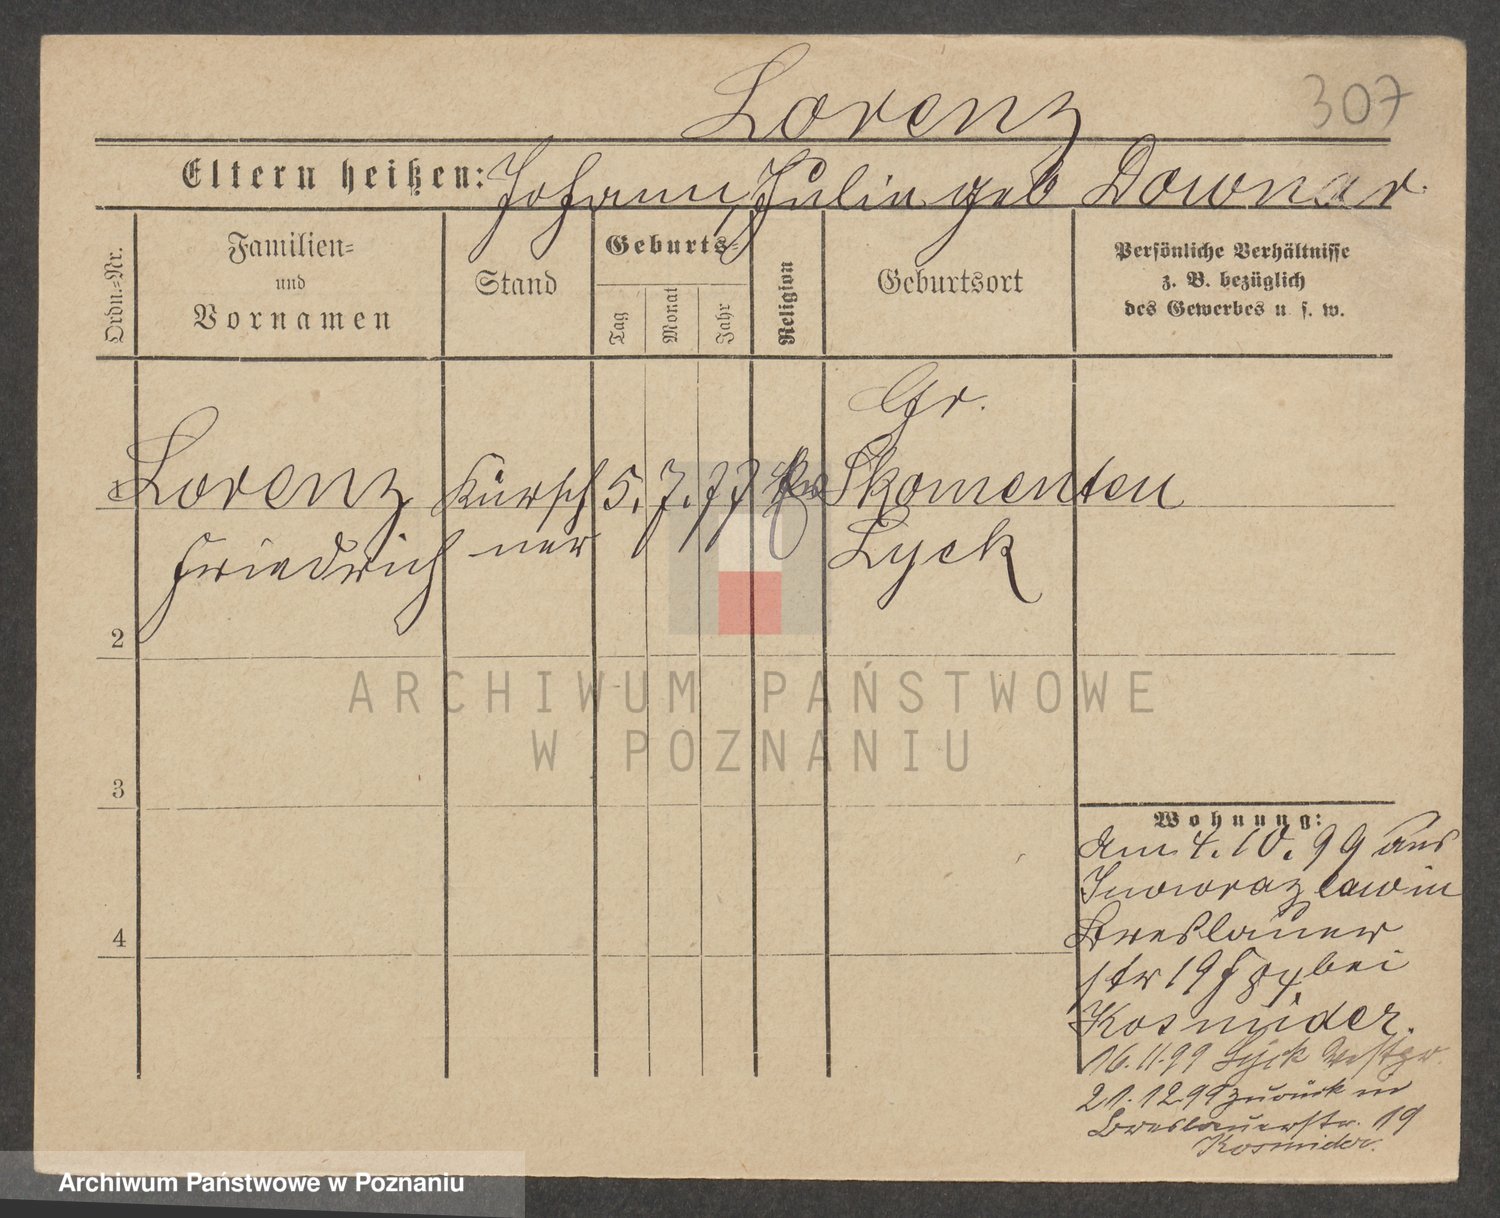 Lorenz
307
Eltern heißen: Johann, Julie geb Downar.
Ordn.-Nr.
Familien-
und
Vornamen
Stand
Geburts-
Tag
Monat
Jahr
Religion
Geburtsort
Persönliche Verhältnisse
z. B. bezüglich
des Gewerbes u. s. w.
Gr.
Lorenz Kürsch 5. 7. 77 Skomenten
Friedrich ner Lyck
2
3
4
Wohnung:
Am 4. 10. 99 aus
Inowrazlaw in
Breslauer
str 19 bei
Kosmider.
16.11.99 Lyck
21.12.99 zurück in
Breslauerstr. 19
Kosmider.
ARCHIWUM PAŃSTWOWE
W POZNANIU
Archiwum Państwowe w Poznaniu